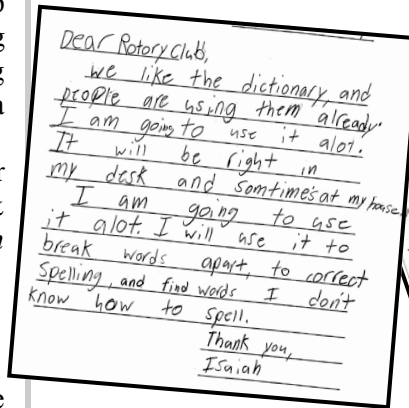 Dear Rotory Club,
we like the dictionary, and
people are using them already.
I am going to use it alot.
It will be right in
my desk and somtimes at my house.
I am going to use
it alot. I will use it to
break words apart, to correct
Spelling, and find words I don't
know how to spell.
Thank you,
Isaiah